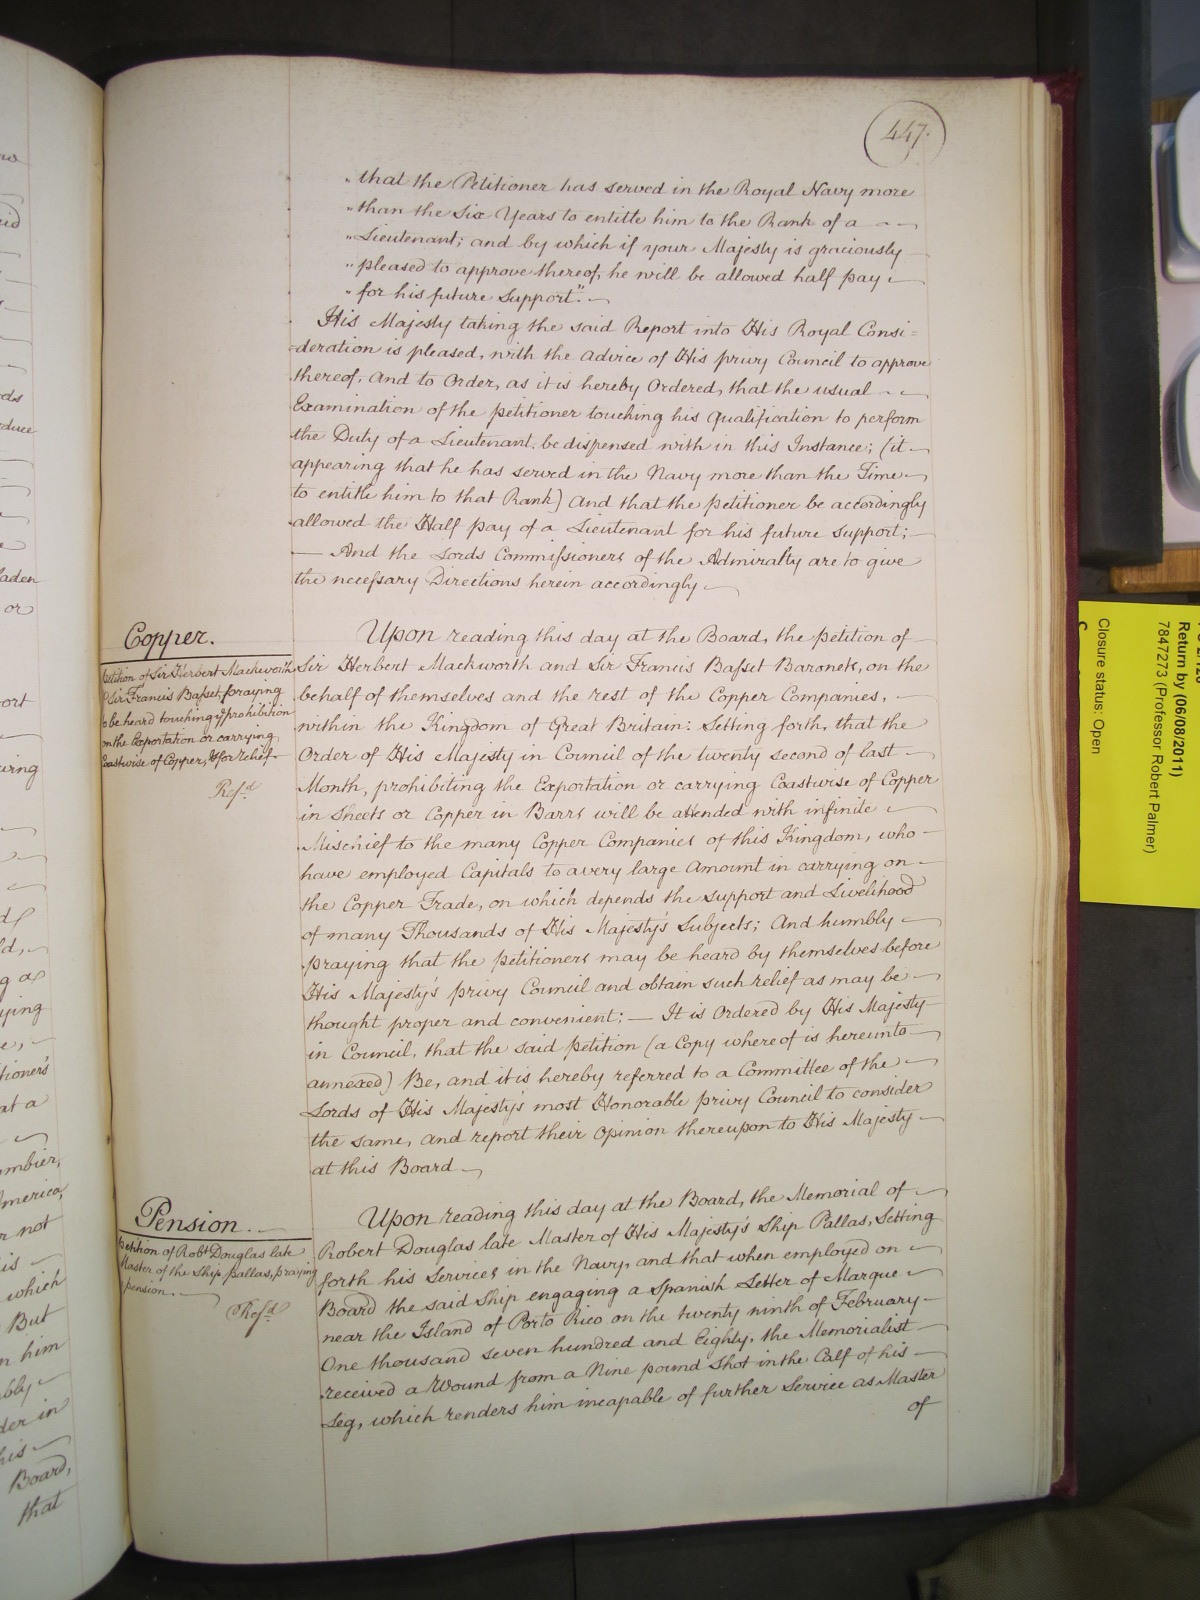 447.
"that the Petitioner has served in the Royal Navy more
"than the Six Years to entitle him to the Rank of a
"Lieutenant; and by which if your Majesty is graciously
"pleased to approve thereof, he will be allowed half pay
"for his future Support".
His Majesty taking the said Report into His Royal Consi=
=deration is pleased, with the advice of His privy Council to approve
thereof, And to Order, as it is hereby Ordered, that the usual
Examination of the petitioner touching his Qualification to perform
the Duty of a Lieutenant, be dispensed with in this Instance; (it
appearing that he has served in the Navy more than the Time
to entitle him to that Rank) And that the petitioner be accordingly
allowed the Half pay of a Lieutenant for his future support;
— And the Lords Commissioners of the Admiralty are to give
the necessary Directions herein accordingly
Copper.
Petition of Sir Herbert Mackworth
& Sir Francis Basset, praying
to be heard touching ye prohibition
on the Exportation or carrying
Coastwise of Copper, & for relief
Refd.
Upon reading this day at the Board, the petition of
Sir Herbert Mackworth and Sir Francis Basset Baronets, on the
behalf of themselves and the rest of the Copper Companies,
within the Kingdom of Great Britain: Setting forth, that the
Order of His Majesty in Council of the twenty second of last
Month, prohibiting the Exportation or carrying Coastwise of Copper
in Sheets or Copper in Barrs will be attended with infinite
Mischief to the many Copper Companies of this Kingdom, who
have employed Capitals to a very large Amount in carrying on
the Copper Trade, on which depends the support and Livelihood
of many Thousands of His Majesty's Subjects; And humbly
praying that the petitioners may be heard by themselves before
His Majesty's privy Council and obtain such relief as may be
thought proper and convenient; — It is Ordered by His Majesty
in Council, that the said petition (a Copy whereof is hereunto
annexed) Be, and it is hereby referred to a Committee of the
Lords of His Majesty's most Honorable privy Council to consider
the same, and report their Opinion thereupon to His Majesty
at this Board
Pension.
Petition of Robt Douglas late
Master of the Ship Pallas, praying
a pension.
Refd.
Upon reading this day at the Board, the Memorial of
Robert Douglas late Master of His Majesty's Ship Pallas, Setting
forth his Services in the Navy, and that when employed on
Board the said Ship engaging a Spanish Letter of Marque
near the Island of Porto Rico on the twenty ninth of February
One thousand seven hundred and Eighty, the Memorialist
received a Wound from a Nine pound Shot in the Calf of his
Leg, which renders him incapable of further Service as Master
of
duce
laden
or
port
at a
America,
r not
which
But
n him
der in
Board,
that
Return by (06/08/2011)
7847273 (Professor Robert Palmer)
Closure status: Open